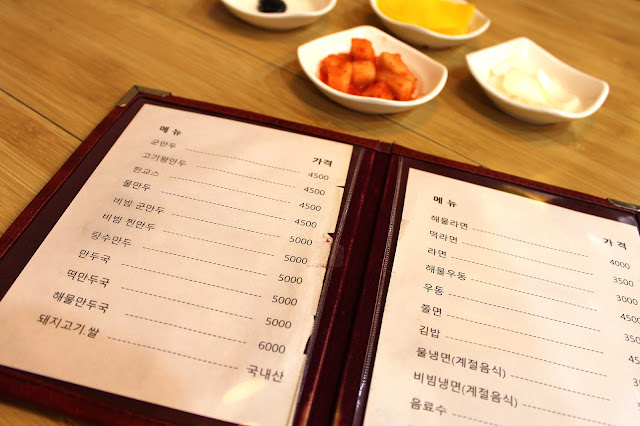 메뉴 가격
군만두 4500
고기왕만두 4500
찐교스 4500
물만두 4500
비빔 군만두 5000
비빔 찐만두 5000
깡수만두 5000
만두국 5000
떡만두국 5000
해물만두국 6000
돼지고기,쌀 국내산
메뉴 가격
해물라면 4000
떡라면 3500
라면 3000
해물우동 4500
우동
쫄면
김밥
물냉면(계절음식)
비빔냉면(계절음식)
음료수